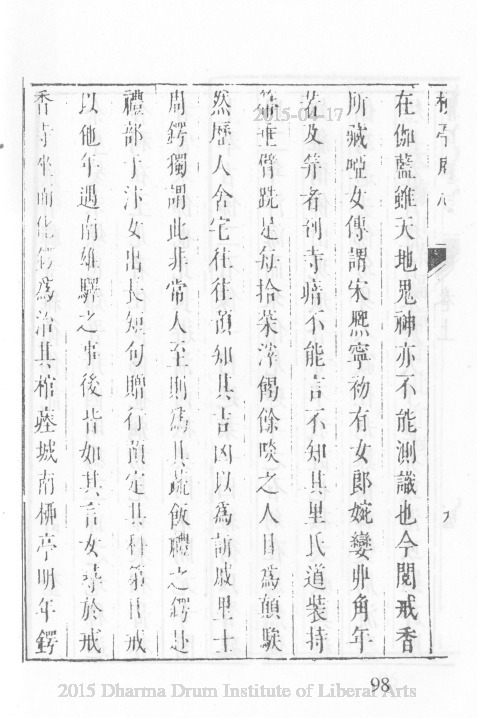 在伽藍雖天地鬼神亦不能測識也今閱戒香
所藏啞女傳謂宋熙寧初有女郎婉孌丱角年
若及笄者到寺喑不能言不知其里氏道裝持
垂臂跣足每拾菜滓餲餘啖之人目為顛騃
然歷人舍宅往往預知其吉凶以為訴戚里士
周鍔獨謂此非常人至則為具蔬飯禮之鍔赴
禮部于汴女出長短句贈行預定其科第且戒
以他年遇南雄驛之事後皆如其言女尋於戒
香寺坐而化鍔為治其棺塟城南柳亭明年鍔
九
卷上
2015-04-17
98
2015 Dharma Drum Institute of Liberal Arts